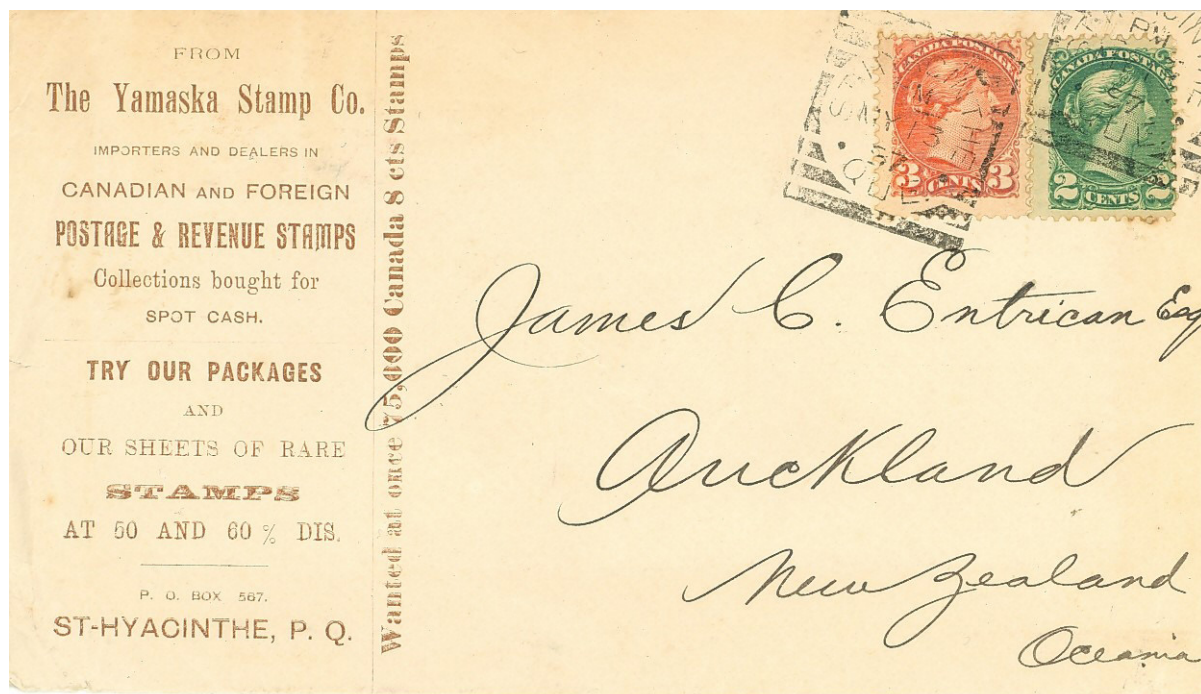 FROM
The Yamaska Stamp Co.
IMPORTERS AND DEALERS IN
CANADIAN AND FOREIGN
POSTAGE & REVENUE STAMPS
Collections bought for
SPOT CASH.
TRY OUR PACKAGES
AND
OUR SHEETS OF RARE
STAMPS
AT 50 AND 60 % DIS.
P. O. BOX 567.
ST-HYACINTHE, P. Q.
Wanted at once 75,000 Canada 8 cts Stamps
CANADA POSTAGE
3 CENTS 3
CANADA POSTAGE
2 CENTS 2
PM
MY 13
97
QUE
James C. Entrican Esq
Auckland
New Zealand
Oceania